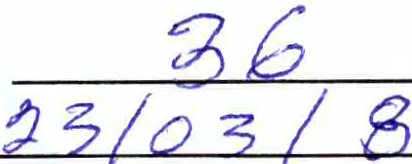 36
23/03/8